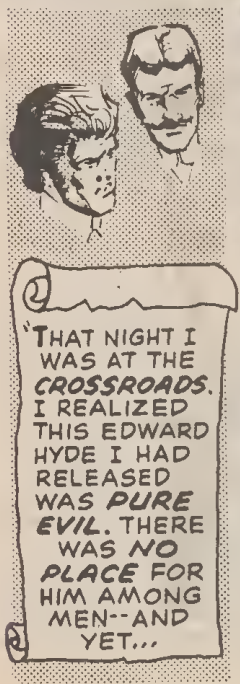 "THAT NIGHT I
WAS AT THE
CROSSROADS.
I REALIZED
THIS EDWARD
HYDE I HAD
RELEASED
WAS PURE
EVIL. THERE
WAS NO
PLACE FOR
HIM AMONG
MEN--AND
YET...